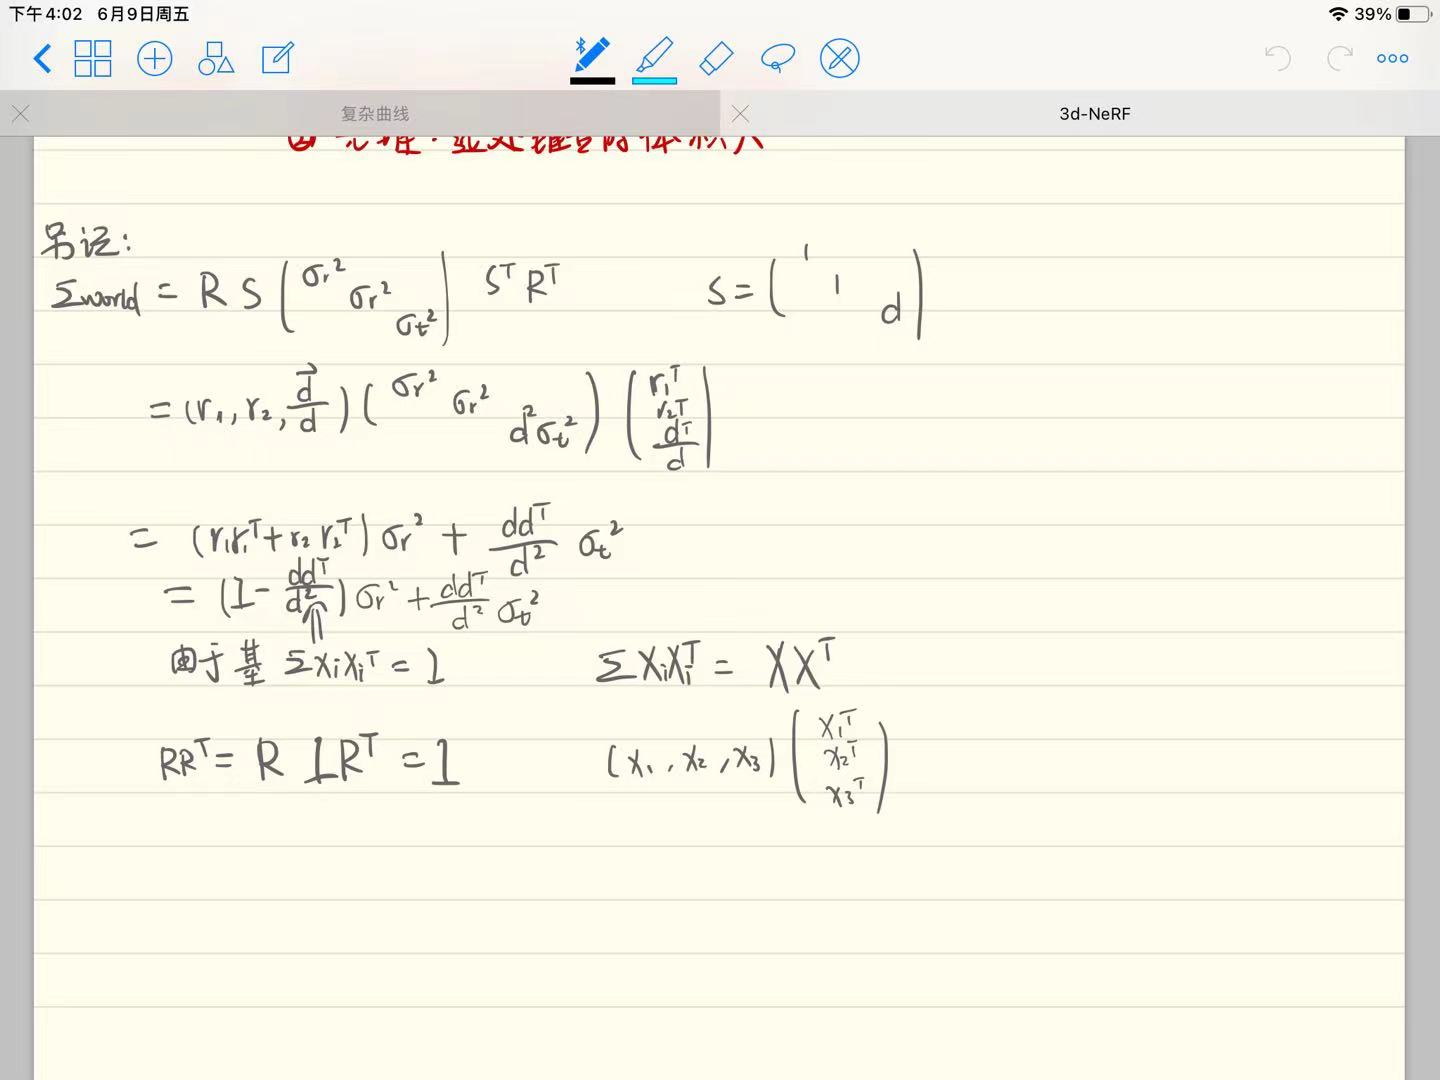 下午4:02 6月9日周五
39%
复杂曲线
3d-NeRF
Σworld = R S ( σr² σr² σt² ) Sᵀ Rᵀ S = ( 1 1 d )
= (r₁, r₂, d⃗/d) ( σr² σr² d²σt² ) ( r₁ᵀ r₂ᵀ dᵀ/d )
= (r₁r₁ᵀ + r₂r₂ᵀ) σr² + ddᵀ/d² σt²
= (1 - ddᵀ/d²) σr² + ddᵀ/d² σt²
⇑
由于基 ΣXiXiᵀ = 1 ΣXiXiᵀ = XXᵀ
RRᵀ = R 1 Rᵀ = 1 (x₁, x₂, x₃) ( x₁ᵀ x₂ᵀ x₃ᵀ )